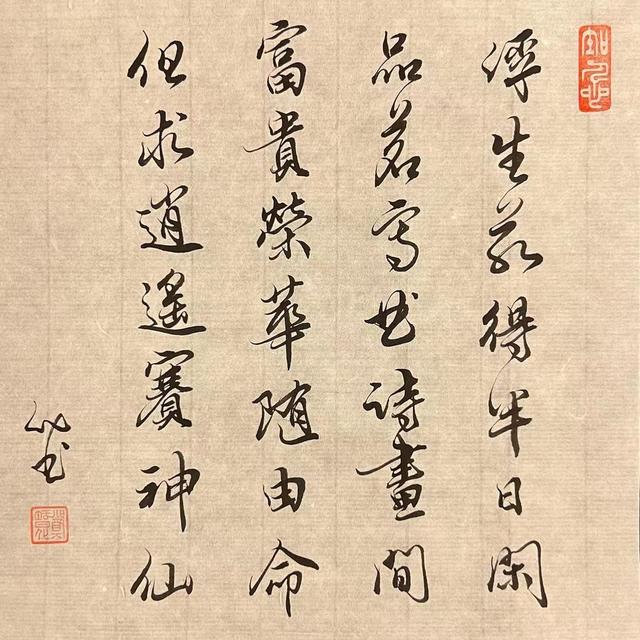 浮生若得半日閑
品茗寫曲詩畫間
富貴榮華随由命
但求逍遙賽神仙